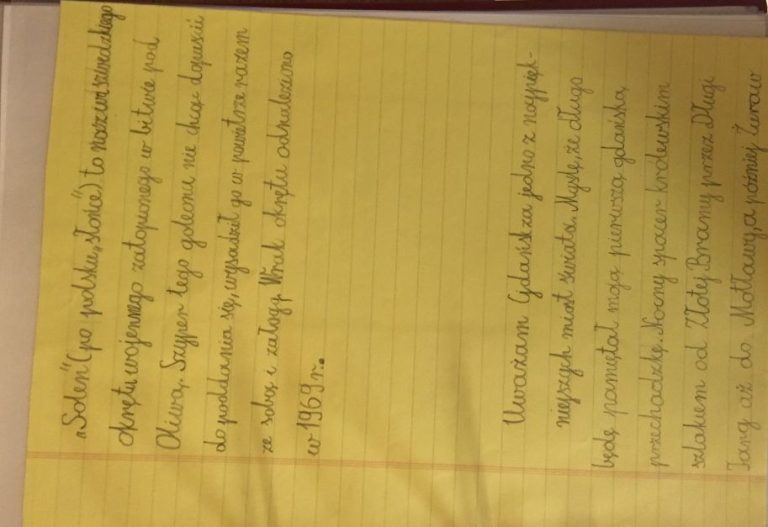 „Solen” (po polsku „słońce”) to nazwa szwedzkiego
okrętu wojennego zatopionego w bitwie pod
Oliwą. Szyper tego galeonu nie chcąc dopuścić
do poddania się, wysadził go w powietrze razem
ze sobą i załogą. Wrak okrętu odnaleziono
w 1969 r.
Uważam Gdańsk za jedno z najpięk-
niejszych miast świata. Myślę, że długo
będę pamiętał moją pierwszą gdańską
przechadzkę. Nocny spacer królewskim
szlakiem od Złotej Bramy przez Długi
Targ aż do Motławy, a później Żuraw